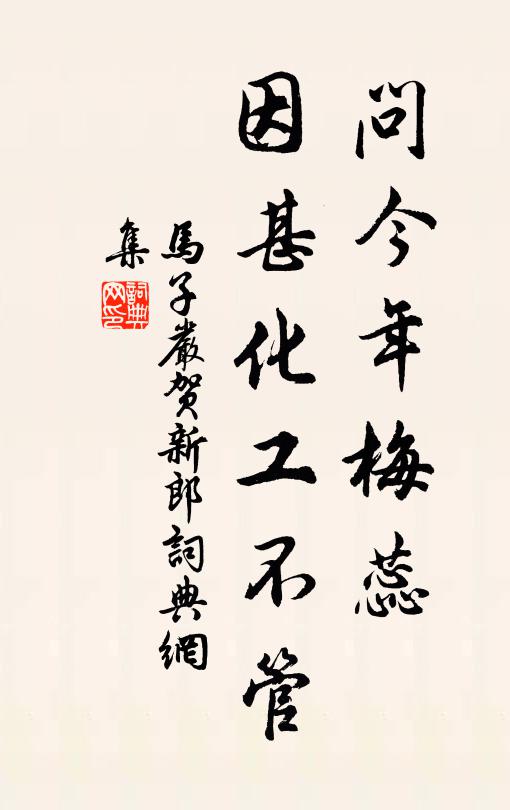 問今年梅蕊
因甚化工不管
馬子嚴賀新郎詞典網
集
詞典網印